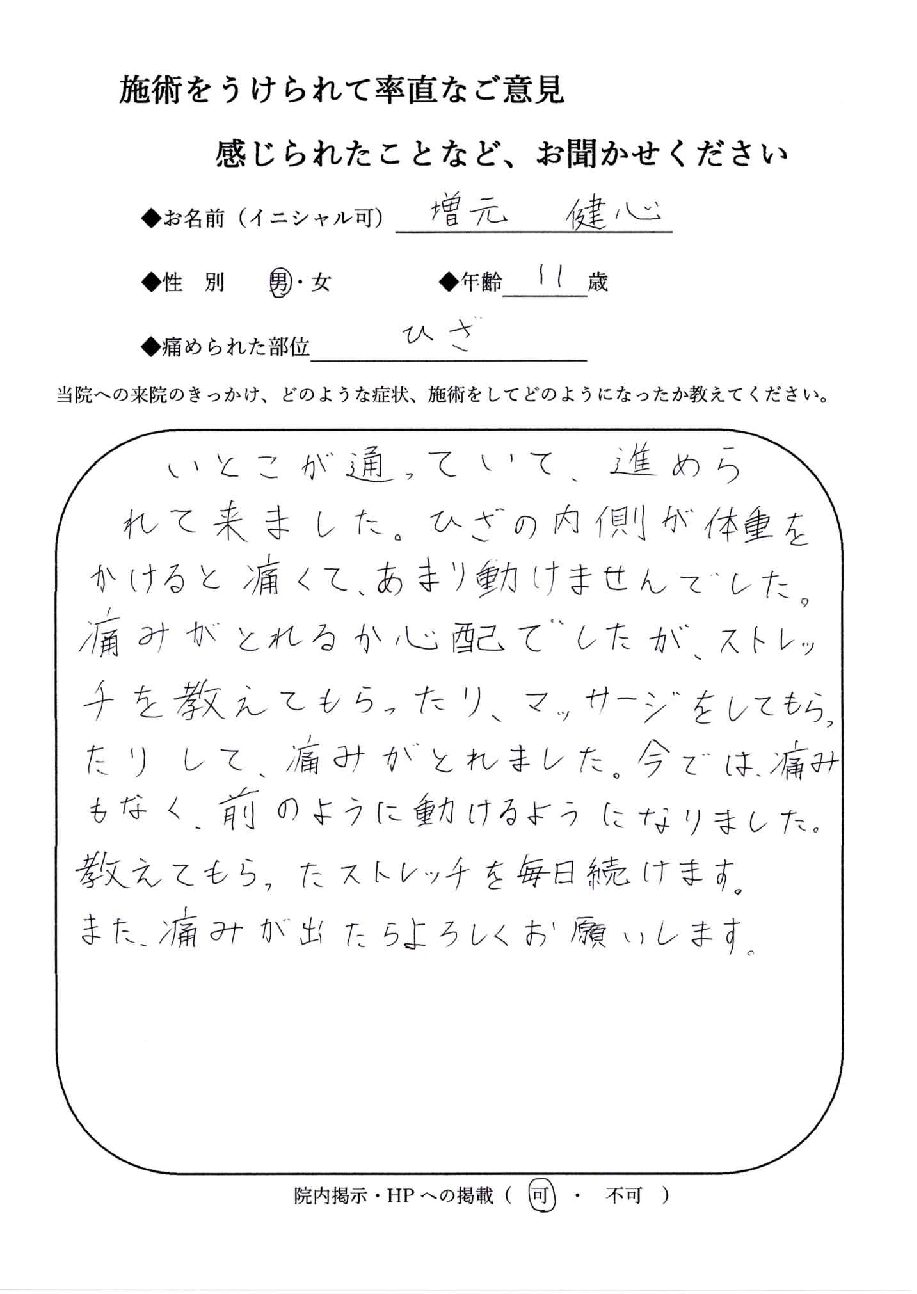 施術をうけられて率直なご意見
感じられたことなど、お聞かせください
◆お名前（イニシャル可） 増元 健心
◆性 別 男・女 ◆年齢 11 歳
◆痛められた部位 ひざ
当院への来院のきっかけ、どのような症状、施術をしてどのようになったか教えてください。
いとこが通っていて、進めら
れて来ました。ひざの内側が体重を
かけると痛くて、あまり動けませんでした。
痛みがとれるか心配でしたが、ストレッ
チを教えてもらったり、マッサージをしてもらっ
たりして、痛みがとれました。今では、痛み
もなく、前のように動けるようになりました。
教えてもらったストレッチを毎日続けます。
また、痛みが出たらよろしくお願いします。
院内掲示・HPへの掲載（ 可 ・ 不可 ）